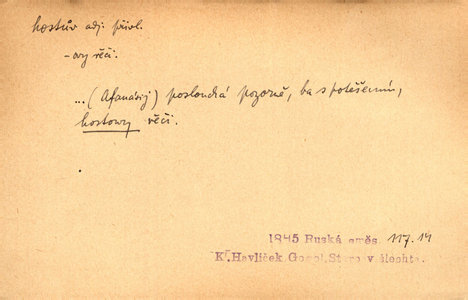 hostův adj. přivl.
-ovy řěči.
...(Afanásij) poslouchá pozorně, ba s potěšením,
hostowy řěči.
1845 Ruská směs. 117.14
K. Havlíček. Gogol. Staro